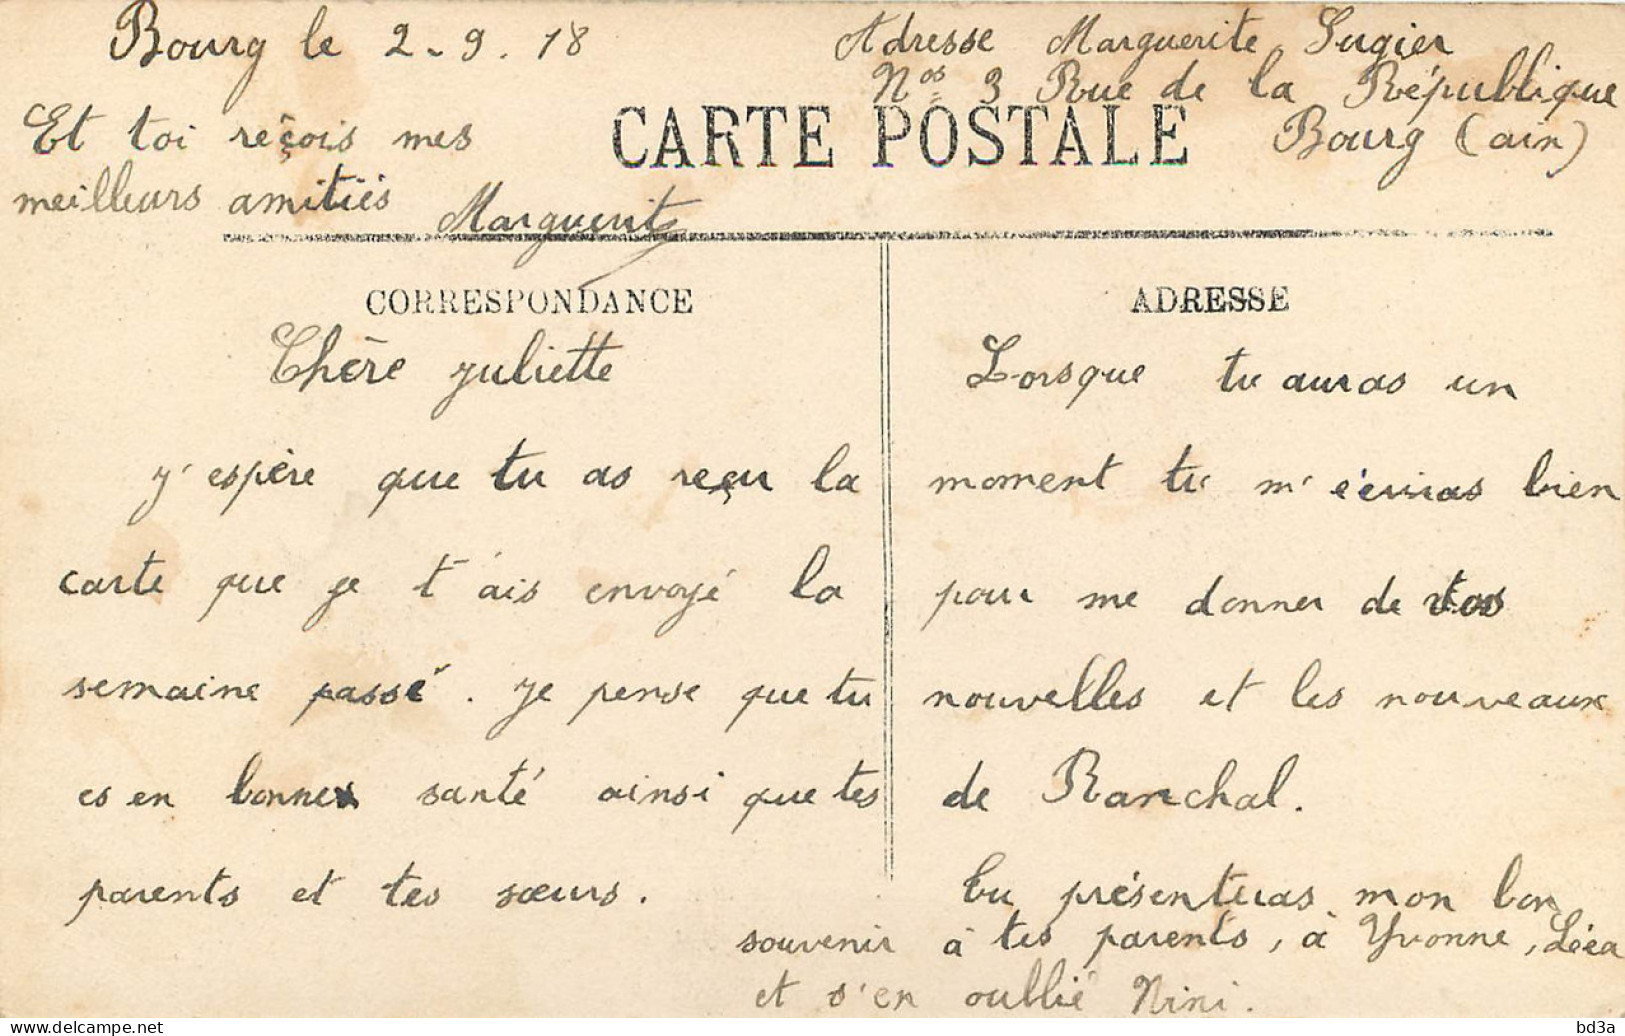 Bourg le 2-9. 18
Adresse Marguerite Sugier
Nos 3 Rue de la République
Bourg (ain)
CARTE POSTALE
CORRESPONDANCE
Chère Juliette
J'espère que tu as reçu la
carte que je t'ais envoyé la
semaine passé. Je pense que tu
es en bonne santé ainsi que tes
parents et tes sœurs.
ADRESSE
Lorsque tu auras un
moment tu m'écriras bien
pour me donner de vos
nouvelles et les nouveaux
de Ranchal.
Tu présenteras mon bon
souvenir à tes parents, à Yvonne, Lééa
et s'en oublié Nini.
Et toi reçois mes
meilleurs amitiés
Marguerite
bd3a